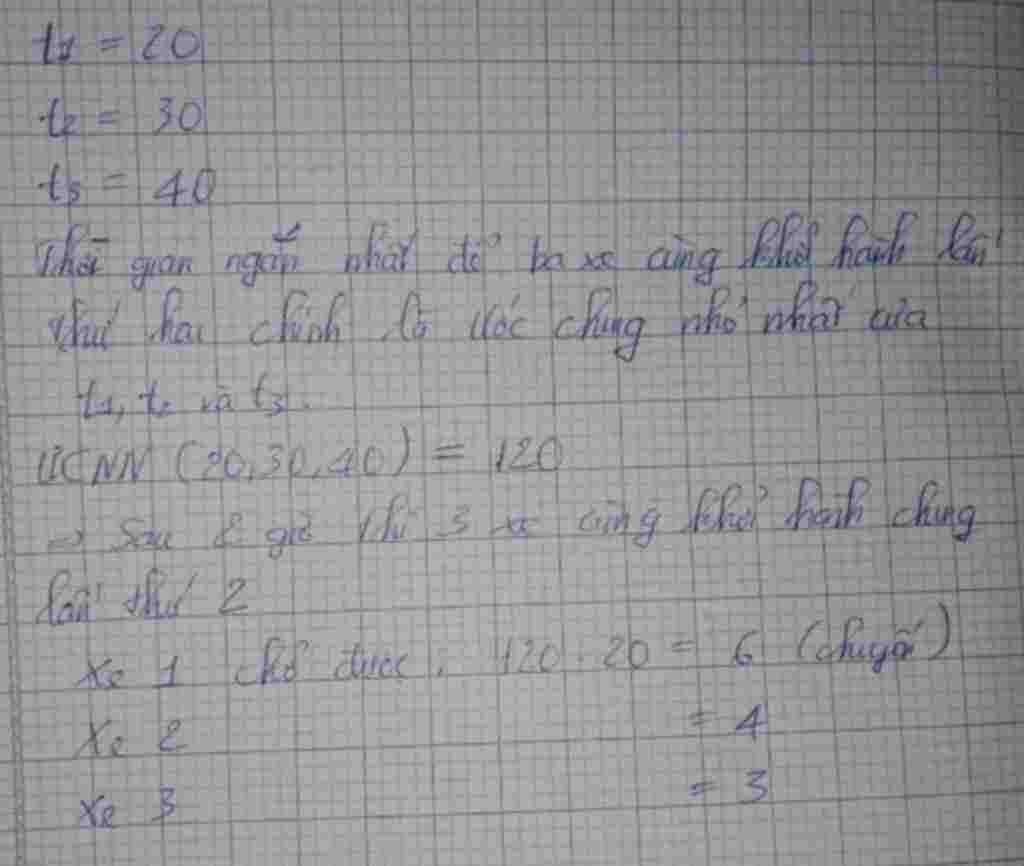 t1 = 20
t2 = 30
t3 = 40
Thời gian ngắn nhất để ba xe cùng khởi hành lần
thứ hai chính là ước chung nhỏ nhất của
t1, t2 và t3.
ƯCNN (20,30,40) = 120
=> Sau 2 giờ thì 3 xe cùng khởi hành chung
lần thứ 2
Xe 1 chở được : 120 : 20 = 6 (chuyến)
Xe 2 = 4
Xe 3 = 3